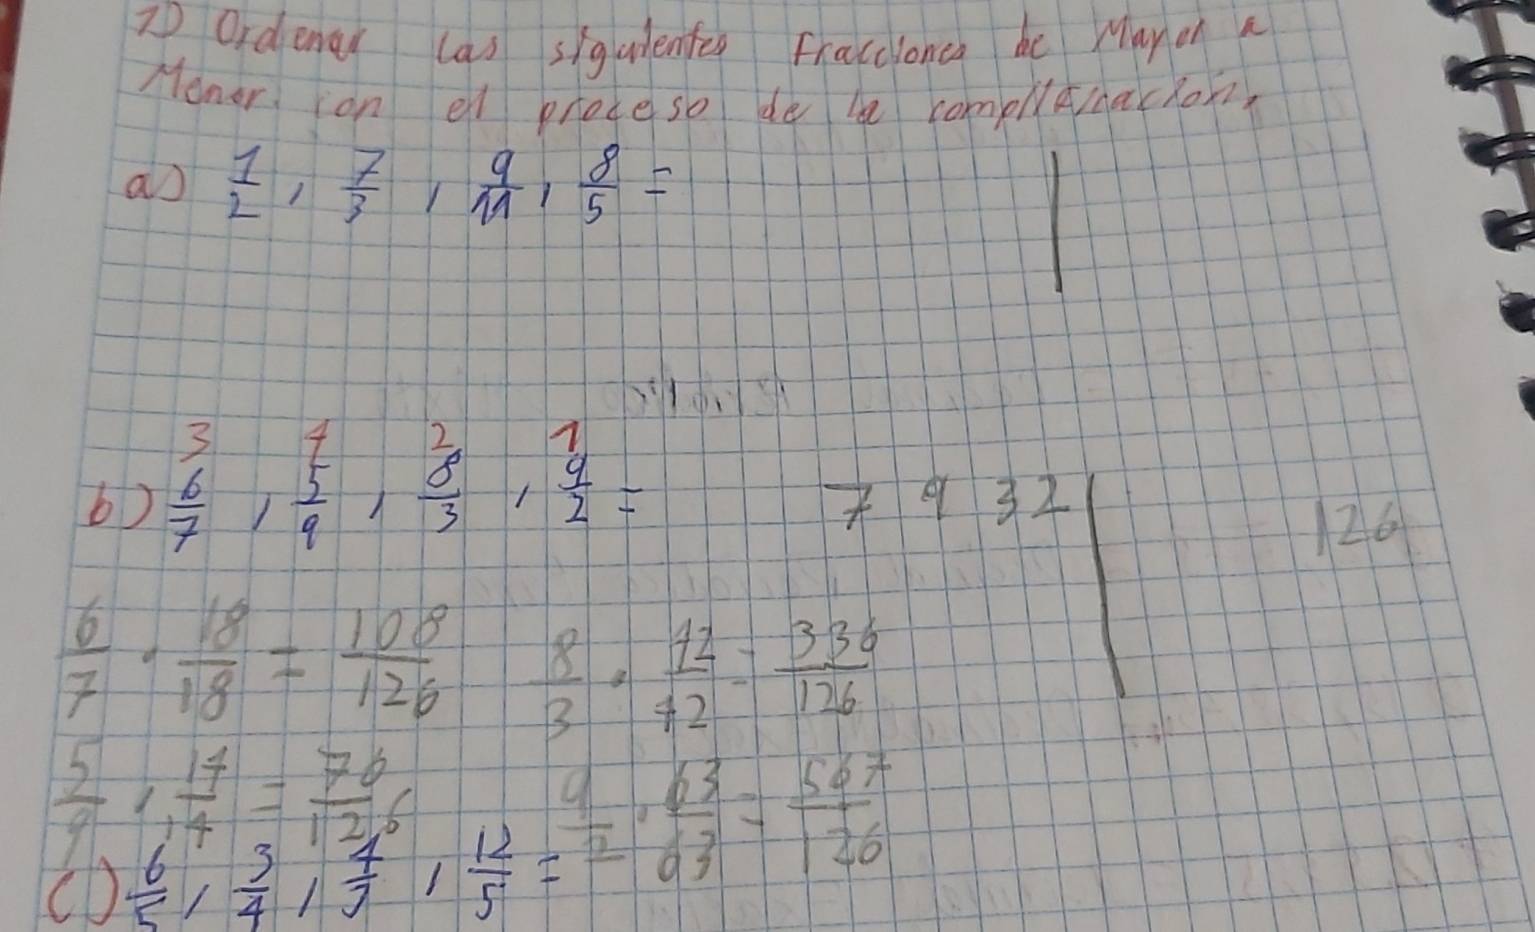 7) Ordenar las siguientes Fracciones de Mayor a
Menor con el proceso de la
a) 1/2 , 7/3 , 9/11 , 8/5 =
3 4 2 1
b) 6/7 , 5/9 , 8/3 , 9/2 = 7 9 3 2 | 126
6/7 · 18/18 = 108/126 8/3 · 42/42 = 336/126
5/9 · 14/14 = 76/126 9/2 · 63/63 = 567/126
c) 6/5 , 3/4 , 4/3 , 12/5 =